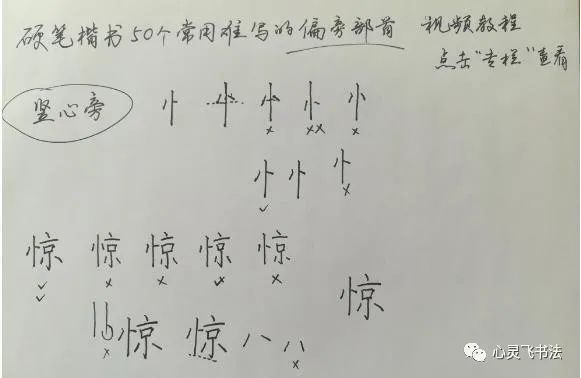 硬笔楷书50个常用难写的偏旁部首 视频教程
点击"专栏"查看
竖心旁 忄 忄 忄 忄 忄
忄 忄 忄
惊 惊 惊 惊 惊
惊
惊 惊 八 八
心灵飞书法